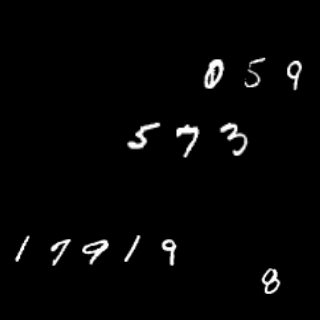 059
573
17919
8